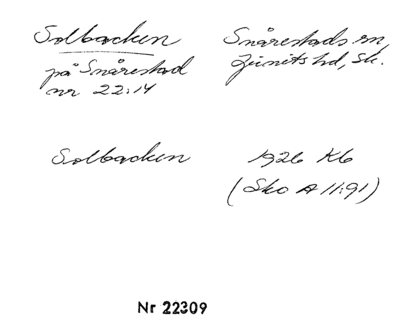 Solbacken
på Snårestad
nr 22:14
Snårestads sn,
Ljunits hd, Sk.
Solbacken
1926 K6
(Sko A 11:91)
Nr 22309